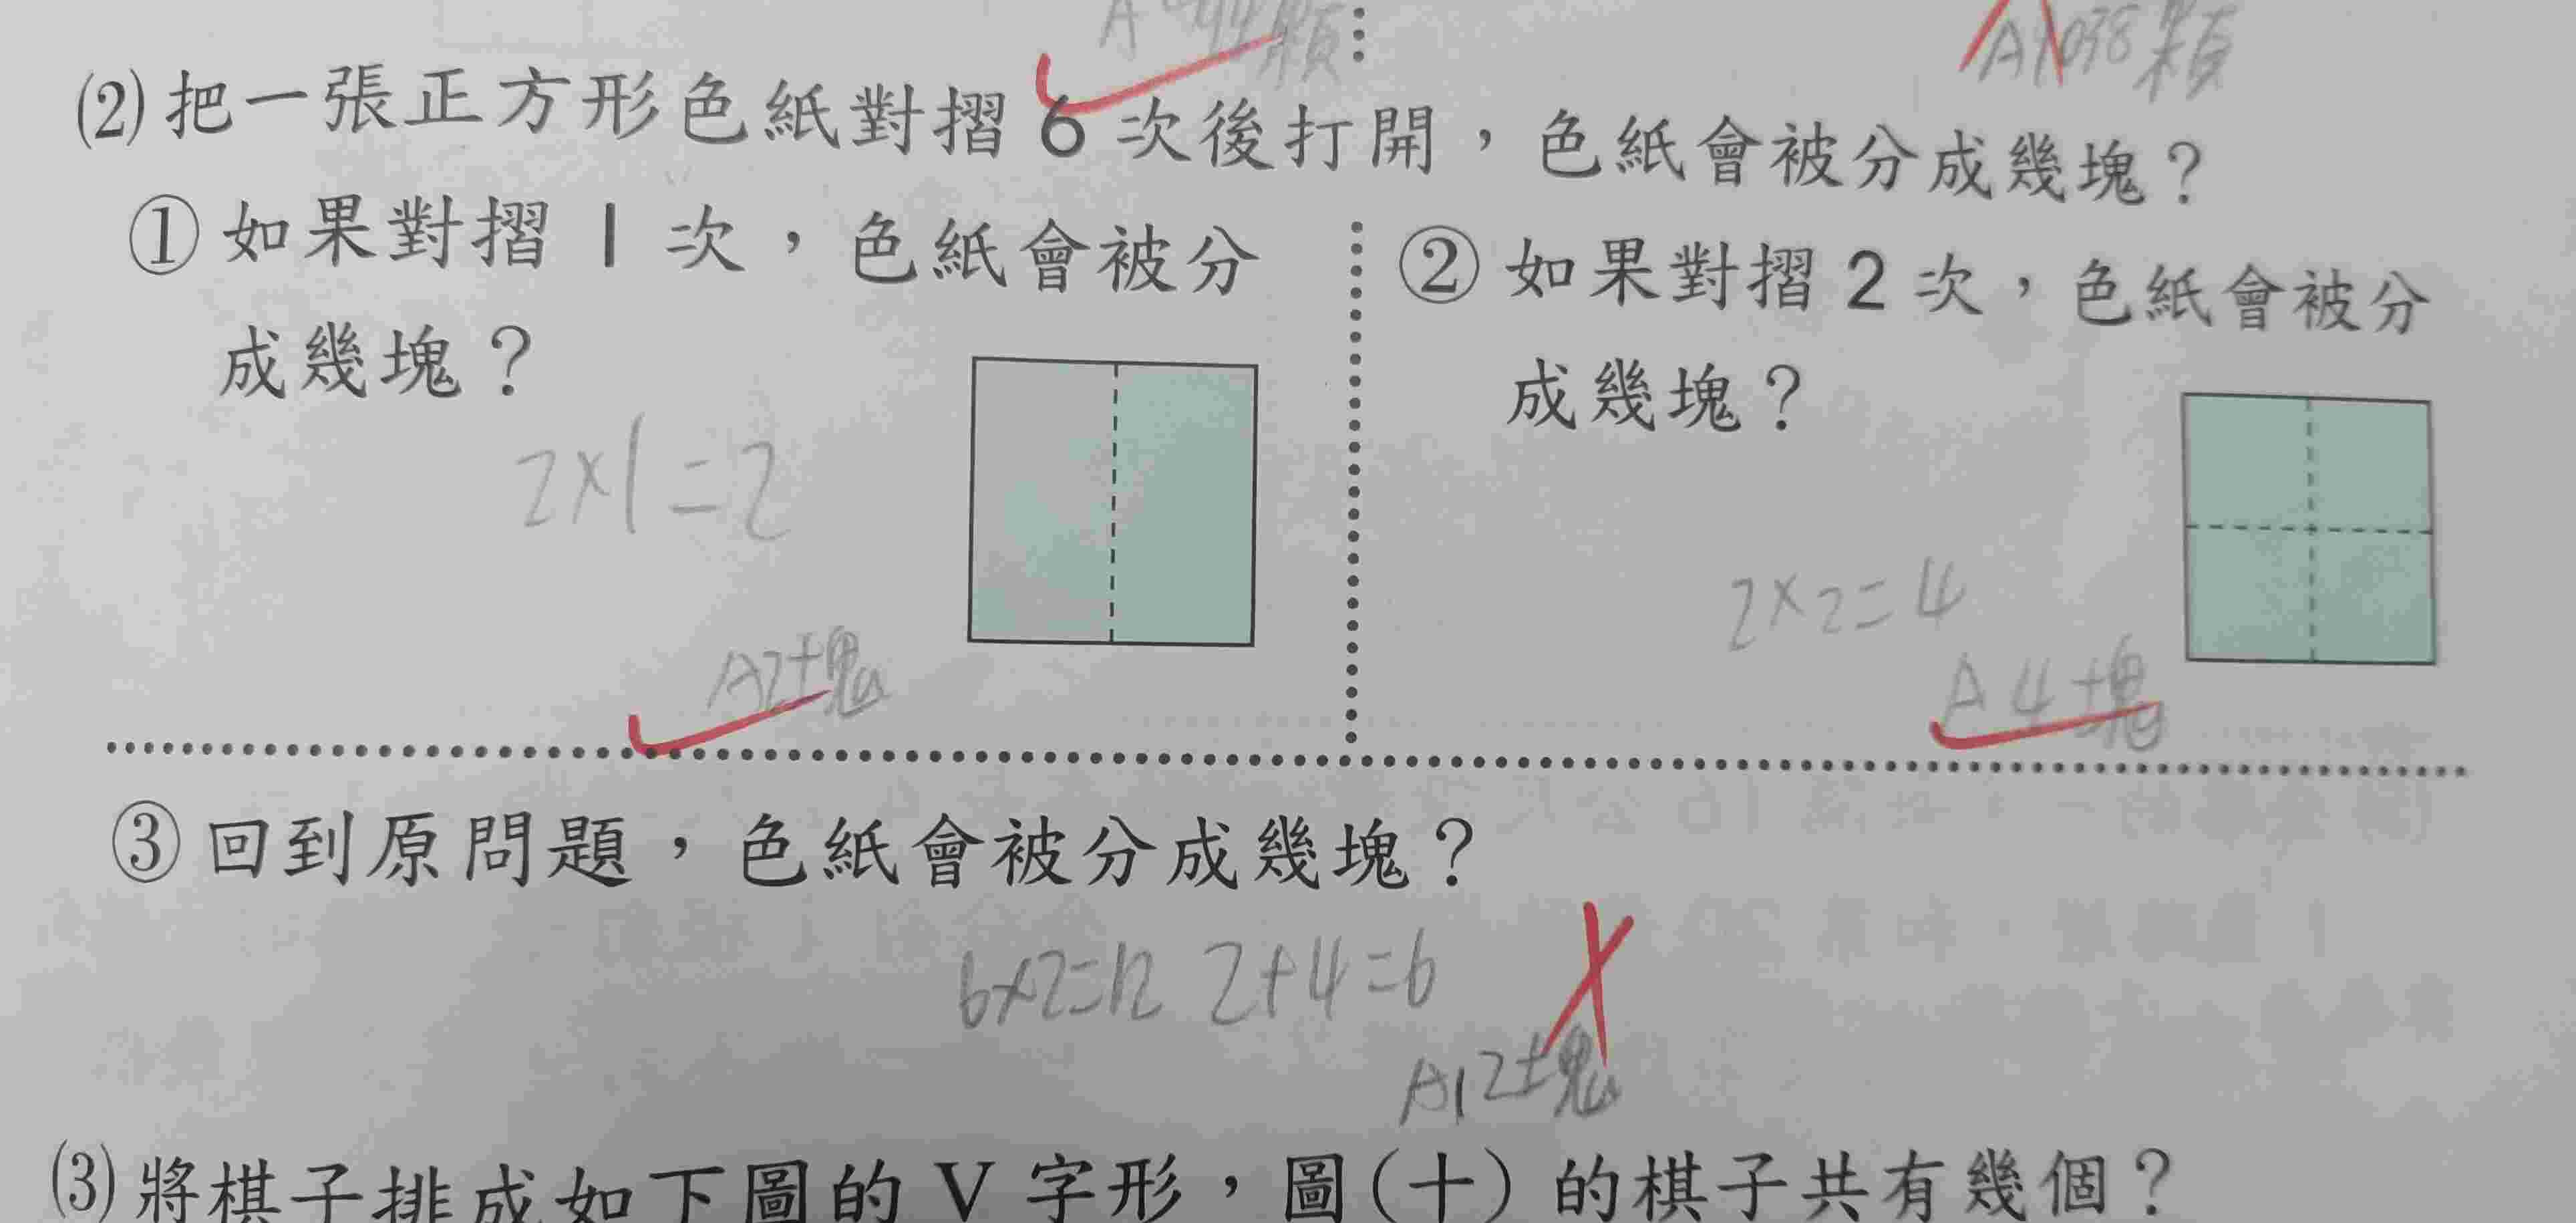 A 44顆
A1038顆
(2)把一張正方形色紙對摺6次後打開，色紙會被分成幾塊？
①如果對摺1次，色紙會被分
成幾塊？
2×1=2
A2塊
②如果對摺2次，色紙會被分
成幾塊？
2×2=4
A4塊
③回到原問題，色紙會被分成幾塊？
6×2=12 2+4=6
A12塊
(3)將棋子排成如下圖的V字形，圖(十)的棋子共有幾個？